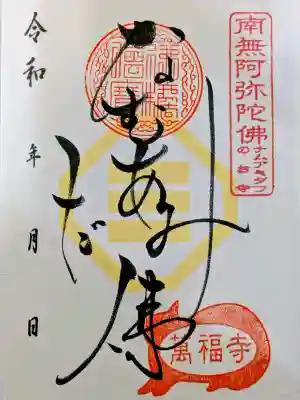 南無阿弥陀佛
ナムアミダブ
の
なむあみだ佛
令和 年 月 日
萬福寺